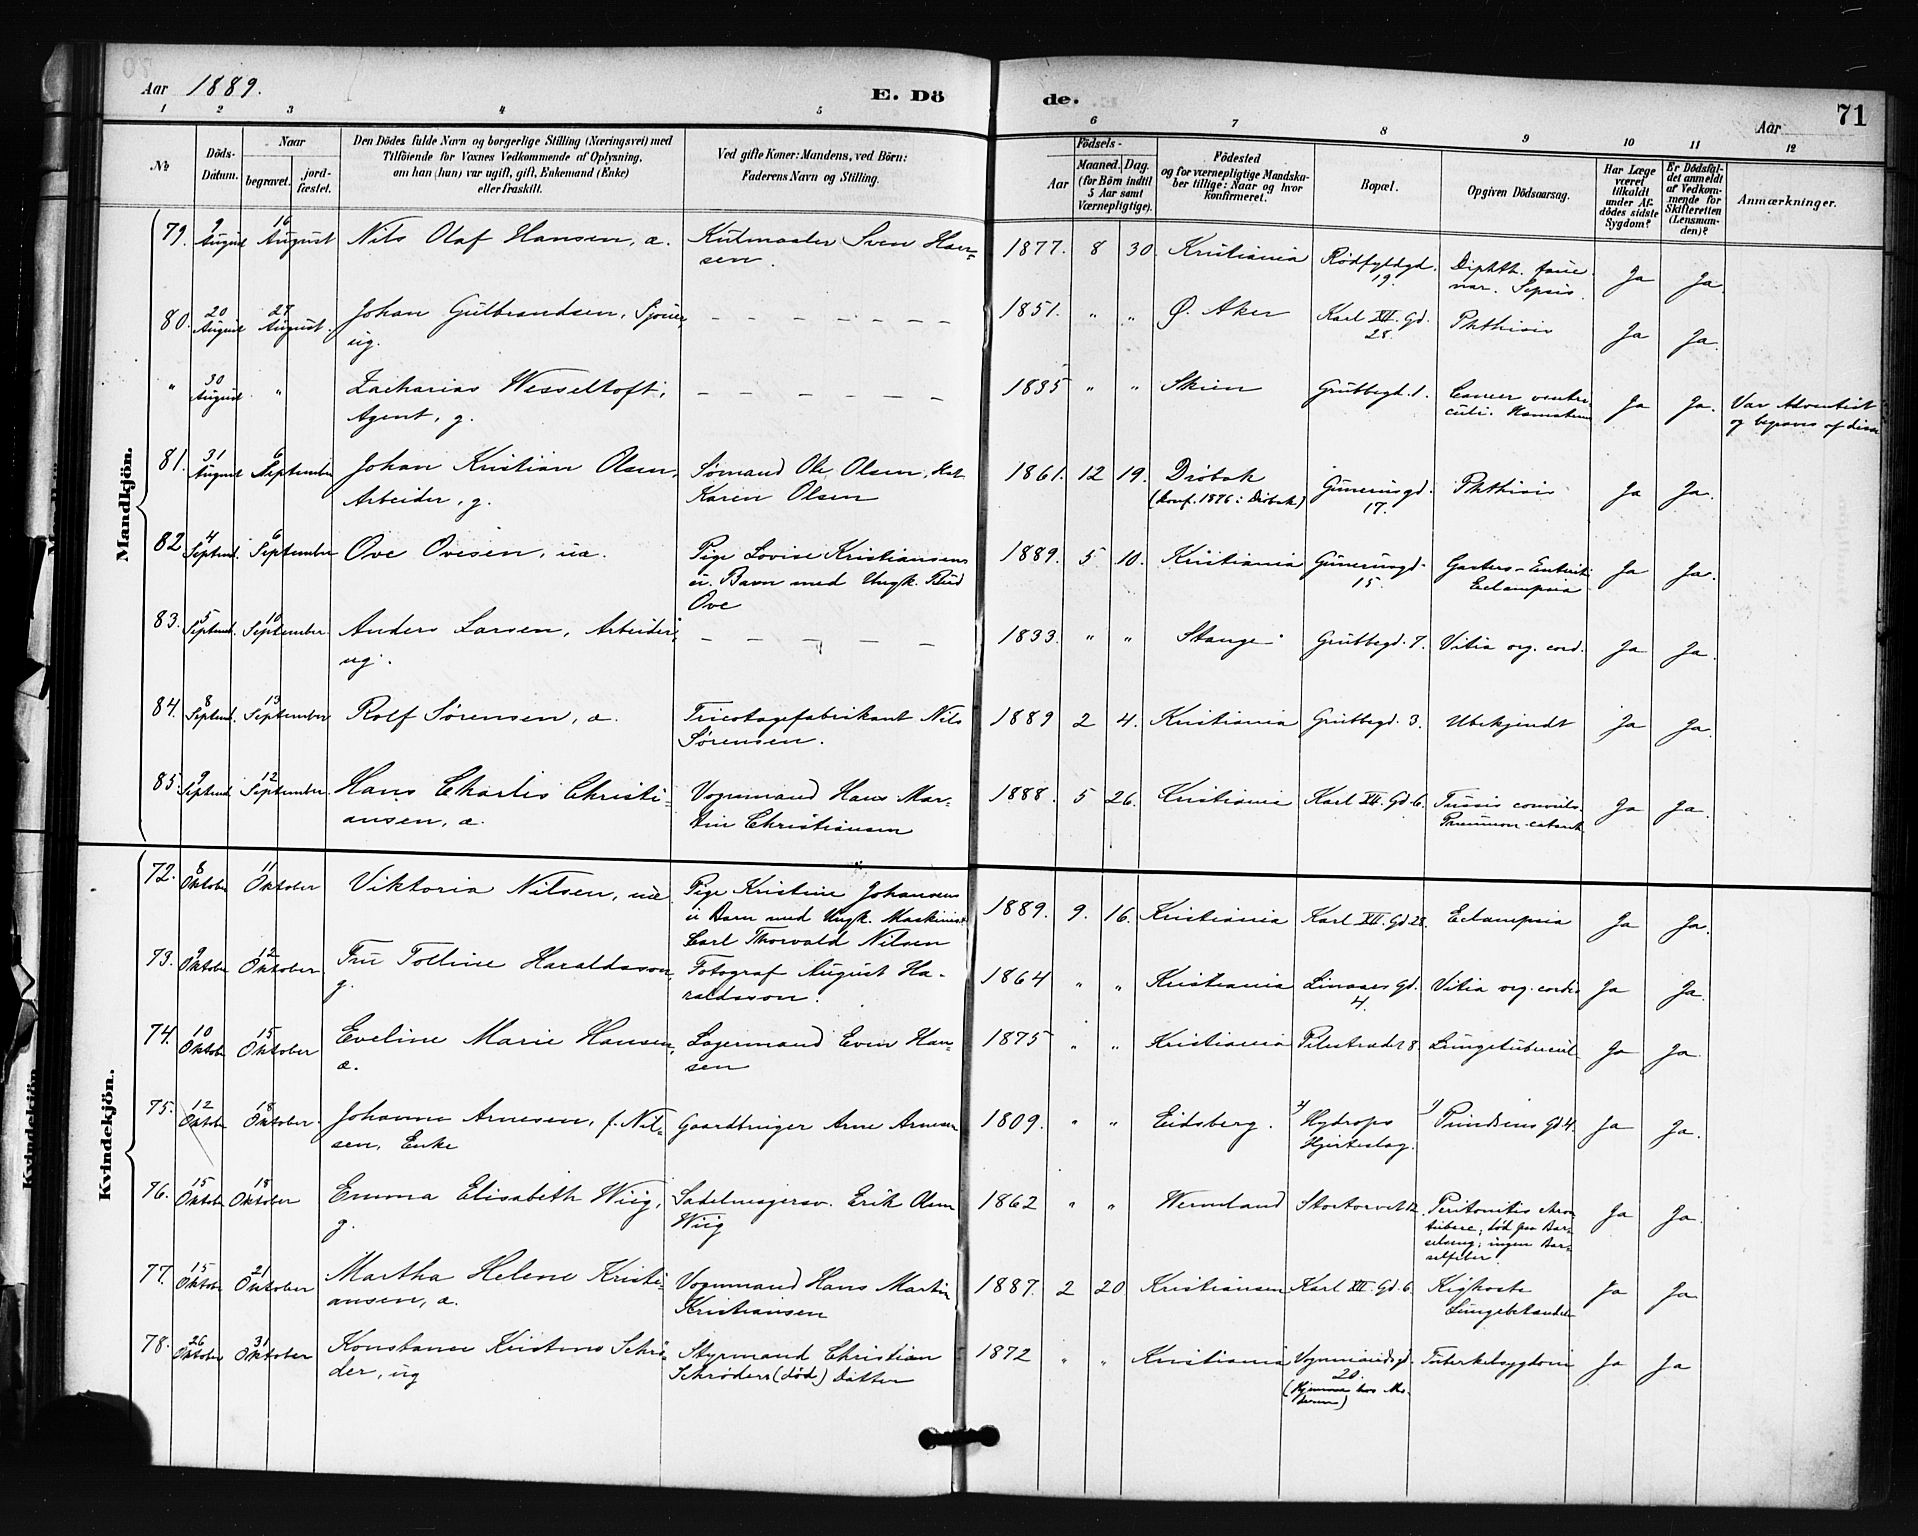 Aar 1889.
E. Dö
de.
71
Aar
1 2 3 4 5 6 7 8 9 10 11 12
No
Döds-Datum.
Naar
begravet.
jord-fæstet.
Den Dödes fulde Navn og borgerlige Stilling (Næringsvei) med
Tilföiende for Voxnes Vedkommende af Oplysning,
om han (hun) var ugift, gift, Enkemand (Enke)
eller fraskilt.
Ved gifte Koner: Mandens, ved Börn:
Faderens Navn og Stilling.
Födsels-
Aar
Maaned. Dag.
(for Börn indtil
5 Aar samt
Værnepligtige).
Födested
og for værnepligtige Mandska-
ber tillige: Naar og hvor
konfirmeret.
Bopæl.
Opgiven Dödsaarsag.
Har Læge
været
tilkaldt
under Af-
dödes sidste
Sygdom?
Er Dödsfal-
det anmeldt
af Vedkom-
mende for
Skifteretten
(Lensman-
den)?
Anmærkninger.
Mandkjön.
79. 9 August 16 August Nils Olaf Hansen, a. Kulmaaler Sven Han=
sen. 1877. 8 30. Kristiania Rødfyldgd. 19. Diphth. fauc. nar. Sepsis. Ja Ja.
80. 20 August 27 August. Johan Gulbrandsen, Sjouer
ug. — — — — — — — 1851. " " Ø. Aker Karl XII. Gd. 28. Phthisis Ja Ja.
" 30 August " Zacharias Wesseltoft,
Agent, g. — — — — — — 1835 " " Skien Grubbegd. 1. Cancer ventri-
culi. Ja Ja. Var Adventist
og begraves af disse
81. 31 August 6 September Johan Kristian Olsen,
Arbeider, g. Sømand Ole Olsen,
Karen Olsen 1861. 12 19. Drøbak
(konf. 1876 i Drøbak) Gunerusgd. 17. Phthisis Ja Ja.
82 4 Septemb. 6 September Ove Ovesen, ua. Pige Lovise Kristiansens
u. Barn med Ungk.
Ove 1889. 5 10. Kristiania Gunerusgd. 15. Gastro-Enterit.
Eclampsia Ja Ja.
83. 5 Septemb. 10 September. Anders Larsen, Arbeider,
ug. — — — — — 1833. " " Stange. Grubbegd. 7. Vitia org. cord. Ja Ja.
84. 8 Septemb. 13 September Rolf Sørensen, a. Tricotagefabrikant Nils
Sørensen. 1889 2 4. Kristiania Grubbegd. 3. Ubekjendt Ja Ja.
85. 9 Septemb. 12 September. Hans Charles Christi-
ansen, a. Vognmand Hans Mar-
tin Christiansen 1888. 5 26. Kristiania Karl XII. Gd. 6. Tussis convuls.
Pneumon. catarrh. Ja Ja.
Kvindekjön.
72. 8 Oktober 11 Oktober Viktoria Nilsen, ua. Pige Kristine Johansens
u. Barn med Ungk. Maskinist
Carl Thorvald Nilsen 1889. 9. 16. Kristiania Karl XII. Gd 28. Eclampsia Ja Ja.
73. 9 Oktober 12 Oktober. Fru Tolline Haraldsson,
g. Fotograf August Ha-
raldsson. 1864 " " Kristiania Linaaes Gd. 4. Vitia org. cordis Ja Ja.
74. 10 Oktober 15 Oktober Eveline Marie Hansen,
a. Lagermand Even Han=
sen 1875 " " Kristiania Pilestrædet 8. Lungetubercul. Ja Ja.
75. 12 Oktober 18 Oktober. Johanne Arnesen, f. Nil=
sen, Enke Gaardbruger Arne Arnesen 1809. " " Eidsberg. Hydrops
Hjerteslag. Prindsens Gd 4. Ja Ja.
76. 15 Oktober 18 Oktober Emma Elisabeth Wiig,
g. Sadelmagersv. Erik Olsen
Wiig 1862 " " Wermland Stortorvet 12. Peritonitis chron.
tuberc.; død paa Bar-
selseng; ingen Bar-
selfeber. Ja Ja.
77. 15 Oktober 21 Oktober Martha Helene Kristi-
ansen, a. Vognmand Hans Martin
Kristiansen 1887. 2 20 Kristiansen Karl XII. Gd. 6. Kighoste
Lungebetændelse Ja Ja.
78. 26 Oktober 31 Oktober Konstance Kristense Schrø-
der, ug Styrmand Christian
Schrøders (død) Datter 1872 " " Kristiania Vognmandsgd. 20.
(Hjemme hos Mo-
deren) Tuberkelsygdom Ja Ja
Kvindekjön.